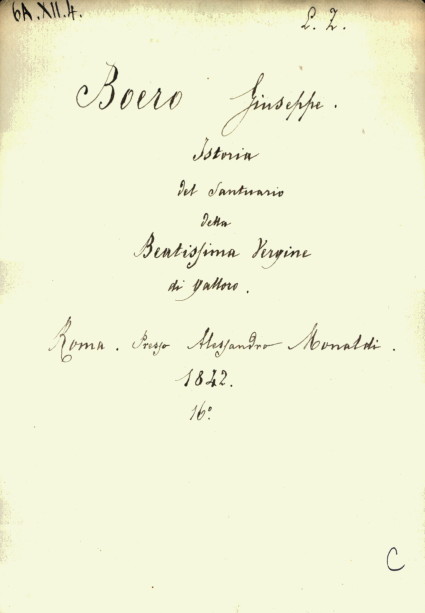 6A.XII.4.
L. Z.
Boero Giuseppe.
Istoria
del Santuario
della
Beatissima Vergine
di Galloro.
Roma. Presso Alessandro Monaldi.
1842.
16°
C